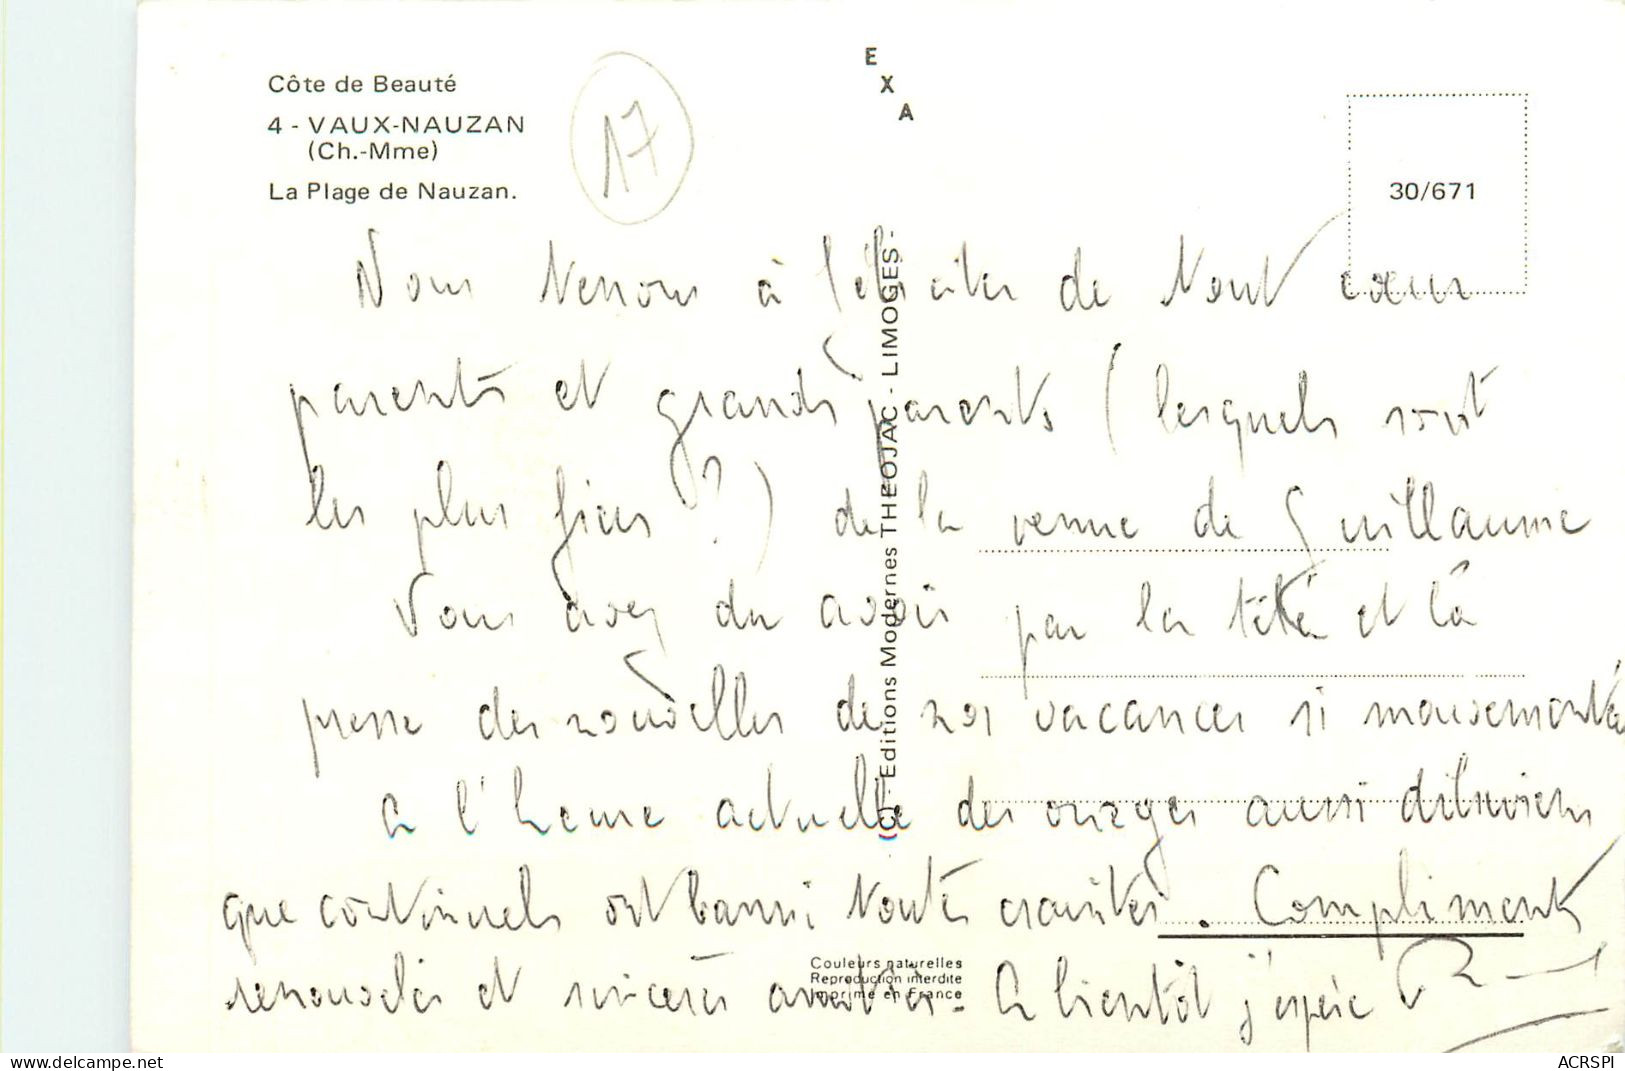 Côte de Beauté
4 - VAUX-NAUZAN
(Ch.-Mme)
La Plage de Nauzan.
17
EXA
30/671
(C) - Editions Modernes THEOJAC - LIMOGES -
Nous tenons à féliciter de tout cœur
parents et grands parents (lesquels sont
les plus fiers ?) de la venue de Guillaume
Vous avez du avoir par la télé et la
presse des nouvelles de nos vacances si mouvementées
A l'heure actuelle des orages aussi diluviens
que continuels ont banni toutes craintes. Compliments
renouvelés et sincères amitiés - A bientôt j'espère
Couleurs naturelles
Reproduction interdite
Imprimé en France
ACRSPI